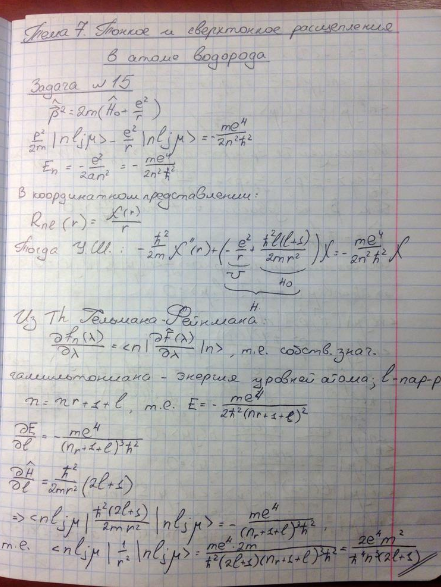 Тема 7. Тонкое и сверхтонкое расщепления
в атоме водорода
Задача №15
p̂² = 2m(Ĥ₀ + e²/r)
p̂²/2m |nljμ> - e²/r |nljμ> = -me⁴/2n²ħ²
Eₙ = -e²/2an² = -me⁴/2n²ħ²
В координатном представлении:
Rₙₑ(r) = χ(r)/r
Тогда У.Ш.: -ħ²/2m χ''(r) + (-e²/r + ħ²l(l+1)/2mr²)χ = -me⁴/2n²ħ² χ
v H₀
H
Из Th Гельмана-Фейнмана:
∂fₙ(λ)/∂λ = <n| ∂f̂(λ)/∂λ |n>, т.е. собств. знач.
гамильтониана - энергия уровней атома; l-пар-р
n = nr + 1 + l, т.е. E = -me⁴/2ħ²(nr+1+l)²
∂E/∂l = me⁴/(nr+1+l)³ħ²
∂Ĥ/∂l = ħ²/2mr² (2l+1)
⇒ <nljμ| ħ²(2l+1)/2mr² |nljμ> = -me⁴/(nr+1+l)³ħ²
т.е. <nljμ| 1/r² |nljμ> = me⁴·2m/ħ²(2l+1)(nr+1+l)³ħ² = 2e⁴m²/ħ⁴n³(2l+1)